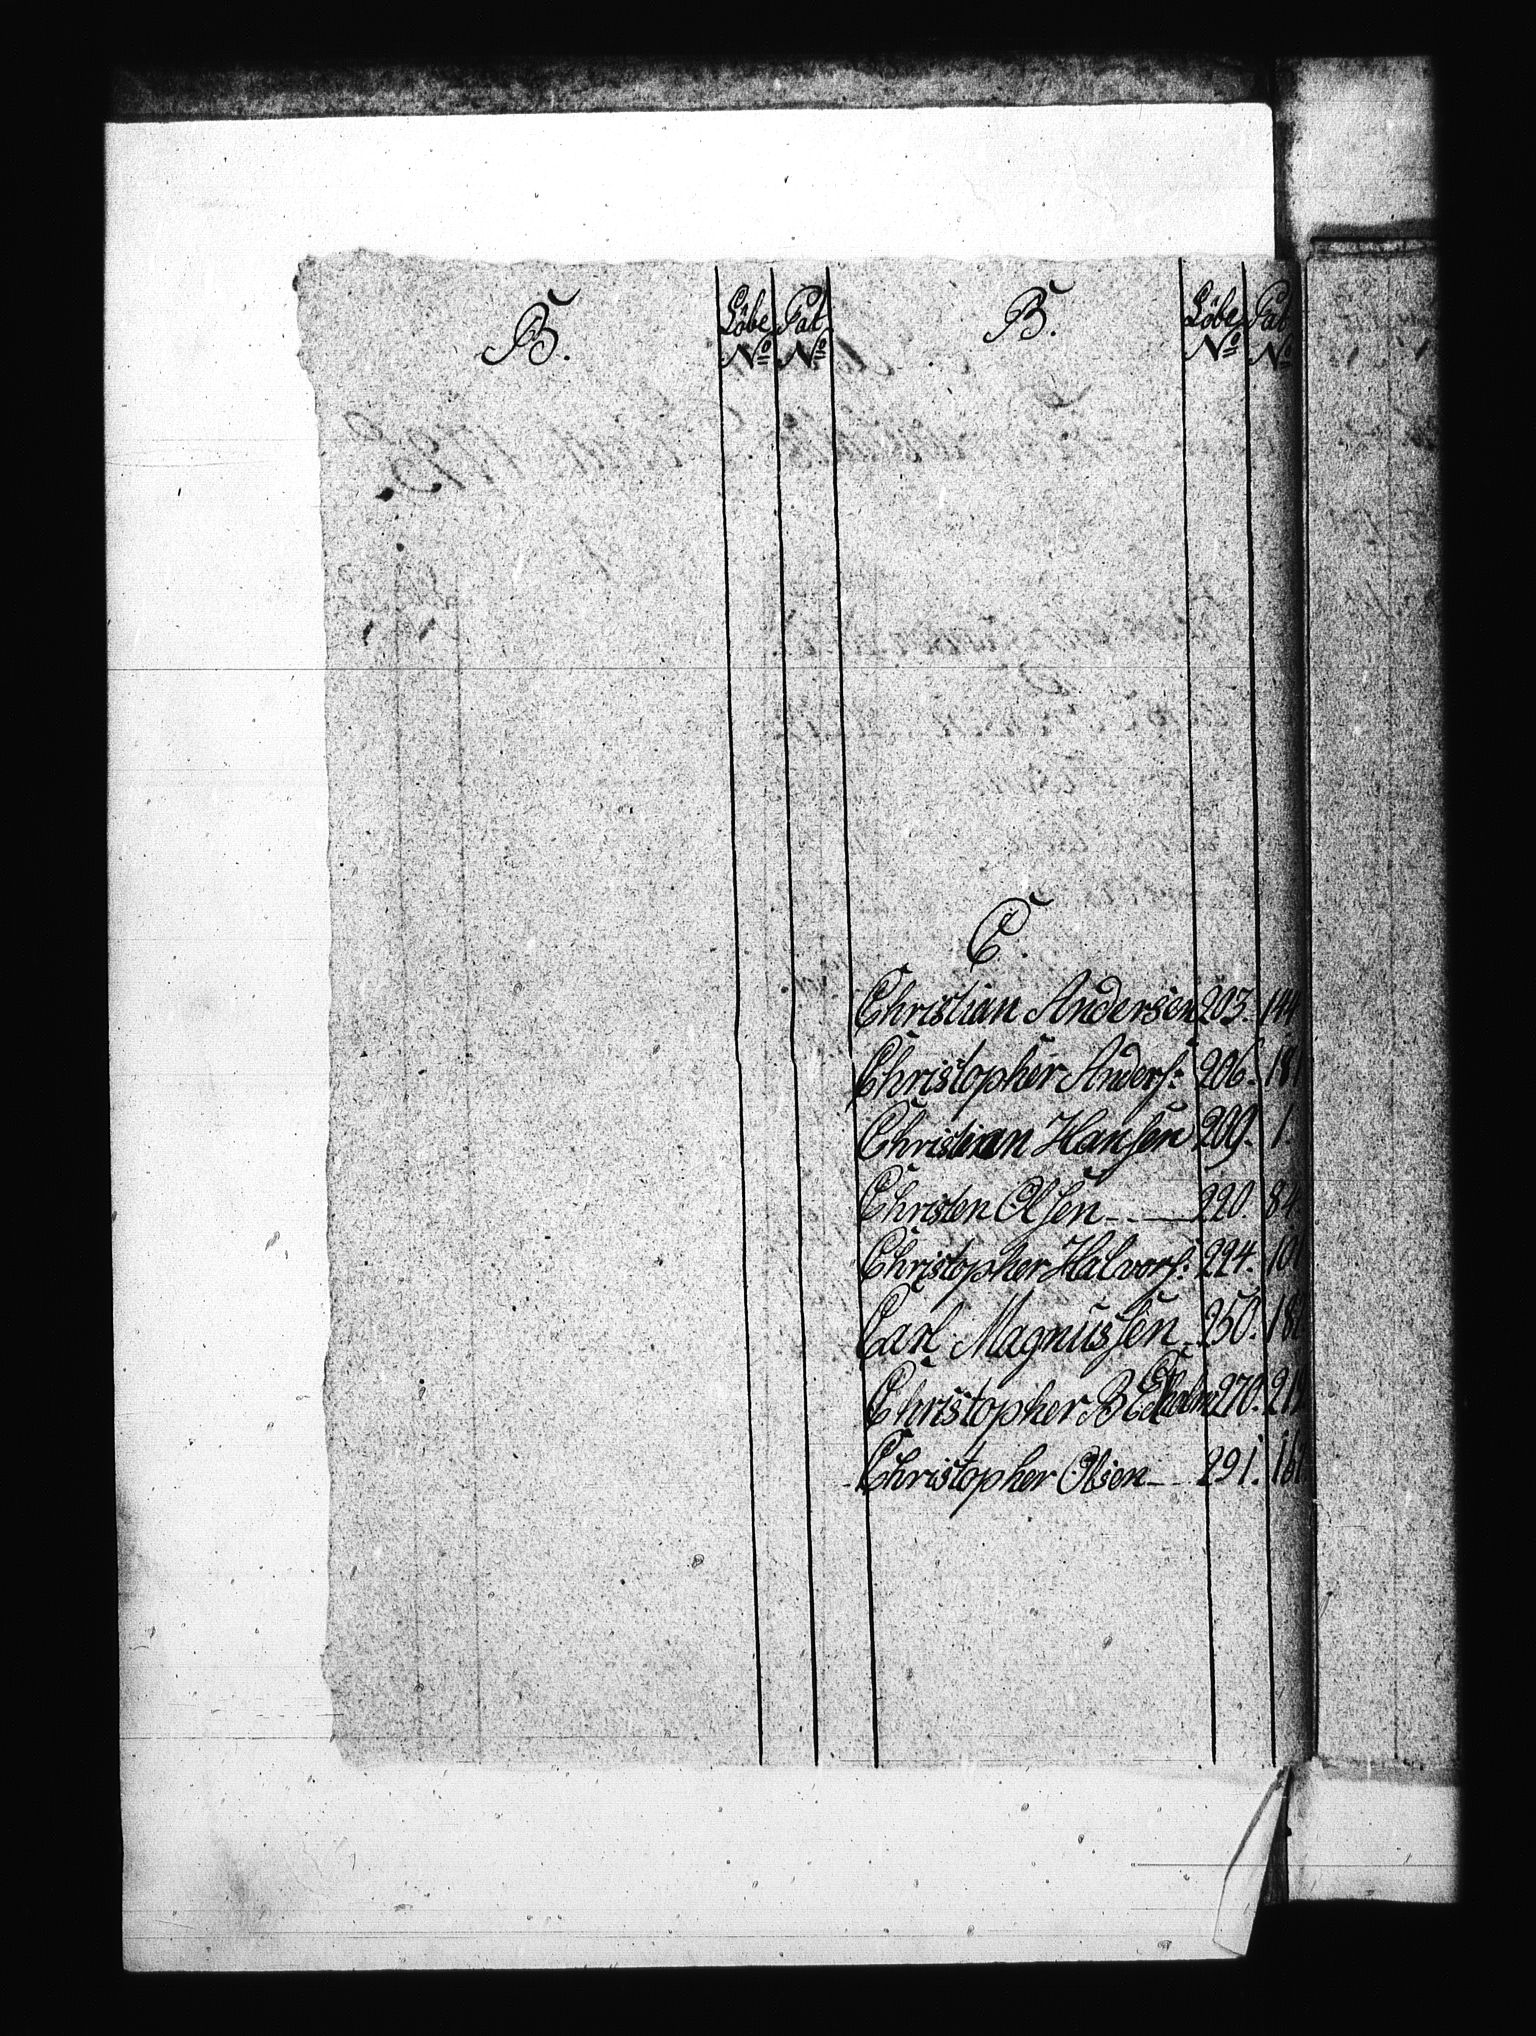 B.
Löbe No
Pat No
B.
Löbe No
Pat No
C.
Christian Andersen 203. 144
Christopher Anders: 206. 181
Christian Hansen 209. 1
Christen Olsen 220. 84
Christopher Halvors: 224. 101
Carl Magnussen 250. 182
Christopher B 270.
Christopher Olsen 291.